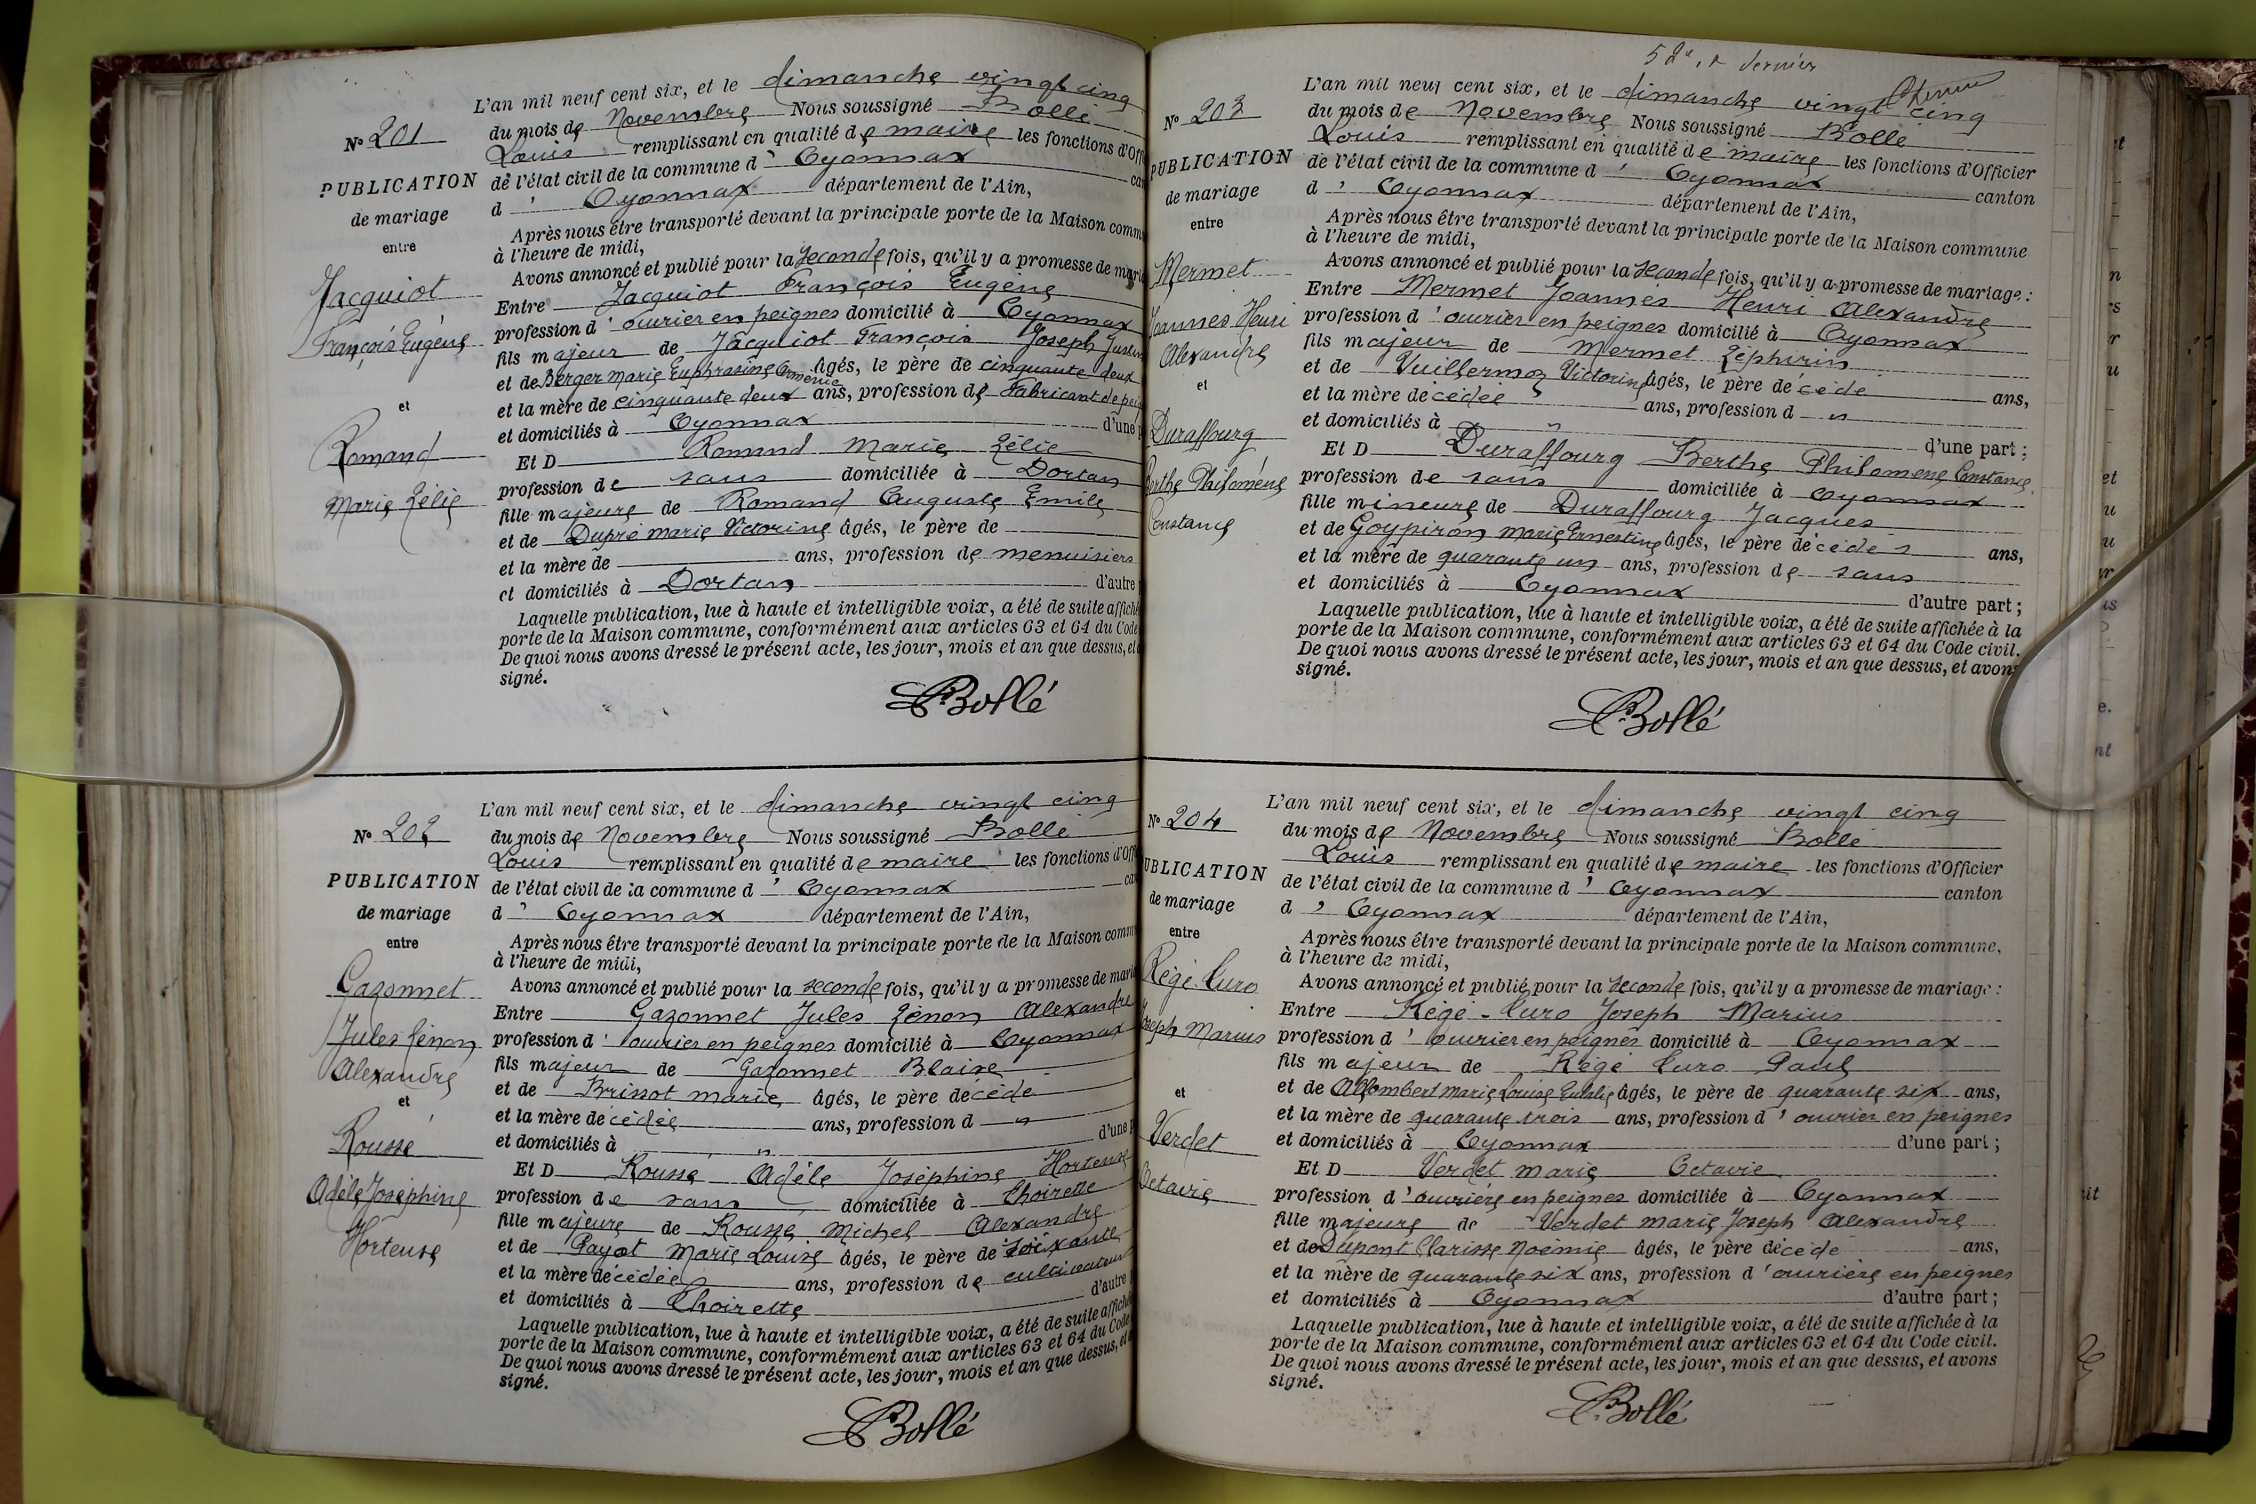 N° 201
PUBLICATION
de mariage
entre
Jacquiot
François Eugène
et
Romand
Marie Zélie
L'an mil neuf cent six, et le dimanche vingt cinq
du mois de Novembre Nous soussigné Bollé
Louis remplissant en qualité de maire les fonctions d'Off
de l'état civil de la commune d' Oyonnax can
d' Oyonnax département de l'Ain,
Après nous être transporté devant la principale porte de la Maison comm
à l'heure de midi,
Avons annoncé et publié pour la seconde fois, qu'il y a promesse de mari
Entre Jacquiot François Eugène
profession d' ouvrier en peignes domicilié à Oyonnax
fils majeur de Jacquiot François Joseph
et de Berger Marie Euphrasine âgés, le père de cinquante deux
et la mère de cinquante deux ans, profession de Fabricant de pei
et domiciliés à Oyonnax d'une p
Et D Romand Marie Zélie
profession de sans domiciliée à Dortan
fille majeure de Romand Auguste Emile
et de Dupré Marie Victorine âgés, le père de
et la mère de ans, profession de menuisiers
et domiciliés à Dortan d'autre
Laquelle publication, lue à haute et intelligible voix, a été de suite affiché
porte de la Maison commune, conformément aux articles 63 et 64 du Code
De quoi nous avons dressé le présent acte, les jour, mois et an que dessus, et
signé.
Bollé
N° 202
PUBLICATION
de mariage
entre
Gazonnet
Jules Zénon
Alexandre
et
Rousse
Adèle Joséphine
Hortense
L'an mil neuf cent six, et le dimanche vingt cinq
du mois de Novembre Nous soussigné Bollé
Louis remplissant en qualité de maire les fonctions d'Off
de l'état civil de la commune d' Oyonnax can
d' Oyonnax département de l'Ain,
Après nous être transporté devant la principale porte de la Maison comm
à l'heure de midi,
Avons annoncé et publié pour la seconde fois, qu'il y a promesse de mari
Entre Gazonnet Jules Zénon Alexandre
profession d' ouvrier en peignes domicilié à Oyonnax
fils majeur de Gazonnet Blaise
et de Brissot Marie âgés, le père de cédé
et la mère de cédée ans, profession d "
et domiciliés à " d'une p
Et D Rousse Adèle Joséphine Hortense
profession de sans domiciliée à Thoirette
fille majeure de Rousse Michel Alexandre
et de Payot Marie Louise âgés, le père de soixante
et la mère de cédée ans, profession de cultivateur
et domiciliés à Thoirette d'autre
Laquelle publication, lue à haute et intelligible voix, a été de suite affiché
porte de la Maison commune, conformément aux articles 63 et 64 du Code
De quoi nous avons dressé le présent acte, les jour, mois et an que dessus, et
signé.
Bollé
52e et dernier
N° 203
PUBLICATION
de mariage
entre
Mermet
Joannès Henri
Alexandre
et
Duraffourg
Berthe Philomène
Constance
L'an mil neuf cent six, et le dimanche vingt cinq
du mois de Novembre Nous soussigné Bollé
Louis remplissant en qualité de maire les fonctions d'Officier
de l'état civil de la commune d' Oyonnax canton
d' Oyonnax département de l'Ain,
Après nous être transporté devant la principale porte de la Maison commune
à l'heure de midi,
Avons annoncé et publié pour la seconde fois, qu'il y a promesse de mariage :
Entre Mermet Joannès Henri Alexandre
profession d' ouvrier en peignes domicilié à Oyonnax
fils majeur de Mermet Zéphirin
et de Vuillermoz Victorine âgés, le père de cédé ans,
et la mère de cédée ans, profession d "
et domiciliés à " d'une part ;
Et D Duraffourg Berthe Philomène Constance
profession de sans domiciliée à Oyonnax
fille mineure de Duraffourg Jacques
et de Goypiron Marie Ernestine âgés, le père de cédé ans,
et la mère de quarante un ans, profession de sans
et domiciliés à Oyonnax d'autre part ;
Laquelle publication, lue à haute et intelligible voix, a été de suite affichée à la
porte de la Maison commune, conformément aux articles 63 et 64 du Code civil.
De quoi nous avons dressé le présent acte, les jour, mois et an que dessus, et avons
signé.
Bollé
N° 204
UBLICATION
de mariage
entre
Régé-Turo
Joseph Marius
et
Verdet
Octavie
L'an mil neuf cent six, et le dimanche vingt cinq
du mois de Novembre Nous soussigné Bollé
Louis remplissant en qualité de maire les fonctions d'Officier
de l'état civil de la commune d' Oyonnax canton
d' Oyonnax département de l'Ain,
Après nous être transporté devant la principale porte de la Maison commune,
à l'heure de midi,
Avons annoncé et publié pour la seconde fois, qu'il y a promesse de mariage :
Entre Régé-Turo Joseph Marius
profession d' ouvrier en peignes domicilié à Oyonnax
fils majeur de Régé Turo Paul
et de Allombert Marie Louise Eulalie âgés, le père de quarante six ans,
et la mère de quarante trois ans, profession d' ouvrier en peignes
et domiciliés à Oyonnax d'une part ;
Et D Verdet Marie Octavie
profession d' ouvrière en peignes domiciliée à Oyonnax
fille majeure de Verdet Marie Joseph Alexandre
et de Dupont Clarisse Noémie âgés, le père de cédé ans,
et la mère de quarante six ans, profession d' ouvrière en peignes
et domiciliés à Oyonnax d'autre part ;
Laquelle publication, lue à haute et intelligible voix, a été de suite affichée à la
porte de la Maison commune, conformément aux articles 63 et 64 du Code civil.
De quoi nous avons dressé le présent acte, les jour, mois et an que dessus, et avons
signé.
Bollé